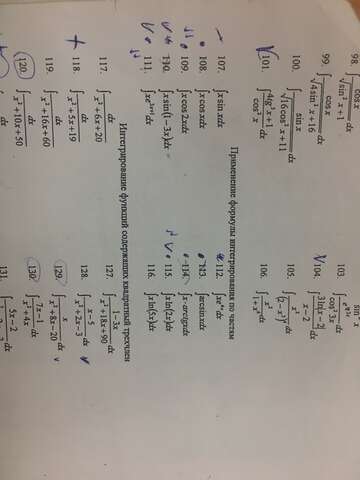 98. ∫ cosx / √(sin²x+1) dx
99. ∫ cosx / √(4sin²x+16) dx
100. ∫ sinx / √(16cos²x+11) dx
101. ∫ (4tgx+1) / cos²x dx
103. ∫ dx / cos²3x
104. ∫ 3ln(x-2) / (x-2) dx
105.
106.
Применение формулы интегрирования по частям
107. ∫xsinxdx
108. ∫xcosxdx
109. ∫xcos2xdx
110. ∫xsin(1-3x)dx
111.
112. ∫xeˣdx
113. ∫arcsinxdx
114. ∫x·arctgxdx
115. ∫xln(2x)dx
116. ∫xln(5x)dx
Интегрирование функций содержащих квадратный трехчлен
117. ∫ dx / (x²+6x+20)
118. ∫ dx / (x²+5x+19)
119. ∫ dx / (x²+16x+60)
120. ∫ dx / (x²+10x+50)
127. ∫ (1-3x) / (x²+18x+90) dx
128. ∫ (x-5) / (x²+2x-3) dx
129. ∫ x / (x²+8x-20) dx
130. ∫ (7x-1) / (x²+4x) dx
131. 5x-2